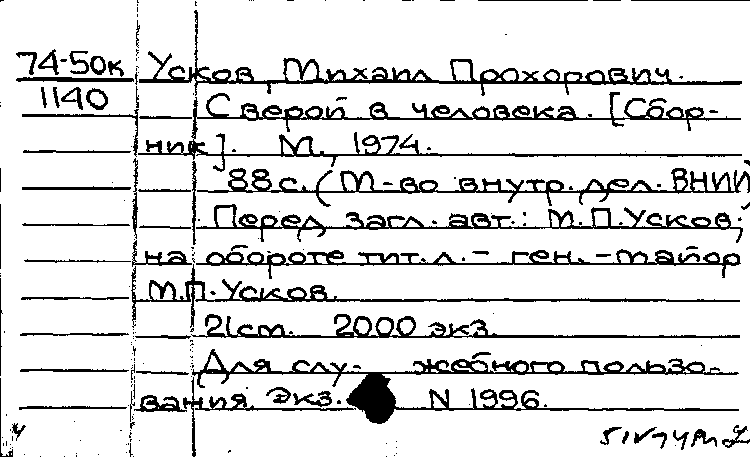 74-50к Усков, Михаил Прохорович.
1140 С верой в человека. [Сбор-
ник]. М., 1974.
88 с. (М-во внутр. дел. ВНИИ)
Перед загл. авт.: М.П.Усков;
на обороте тит.л.- ген.-майор
М.П.Усков.
21см. 2000 экз.
Для слу- жебного пользо-
вания. Экз. N 1996.